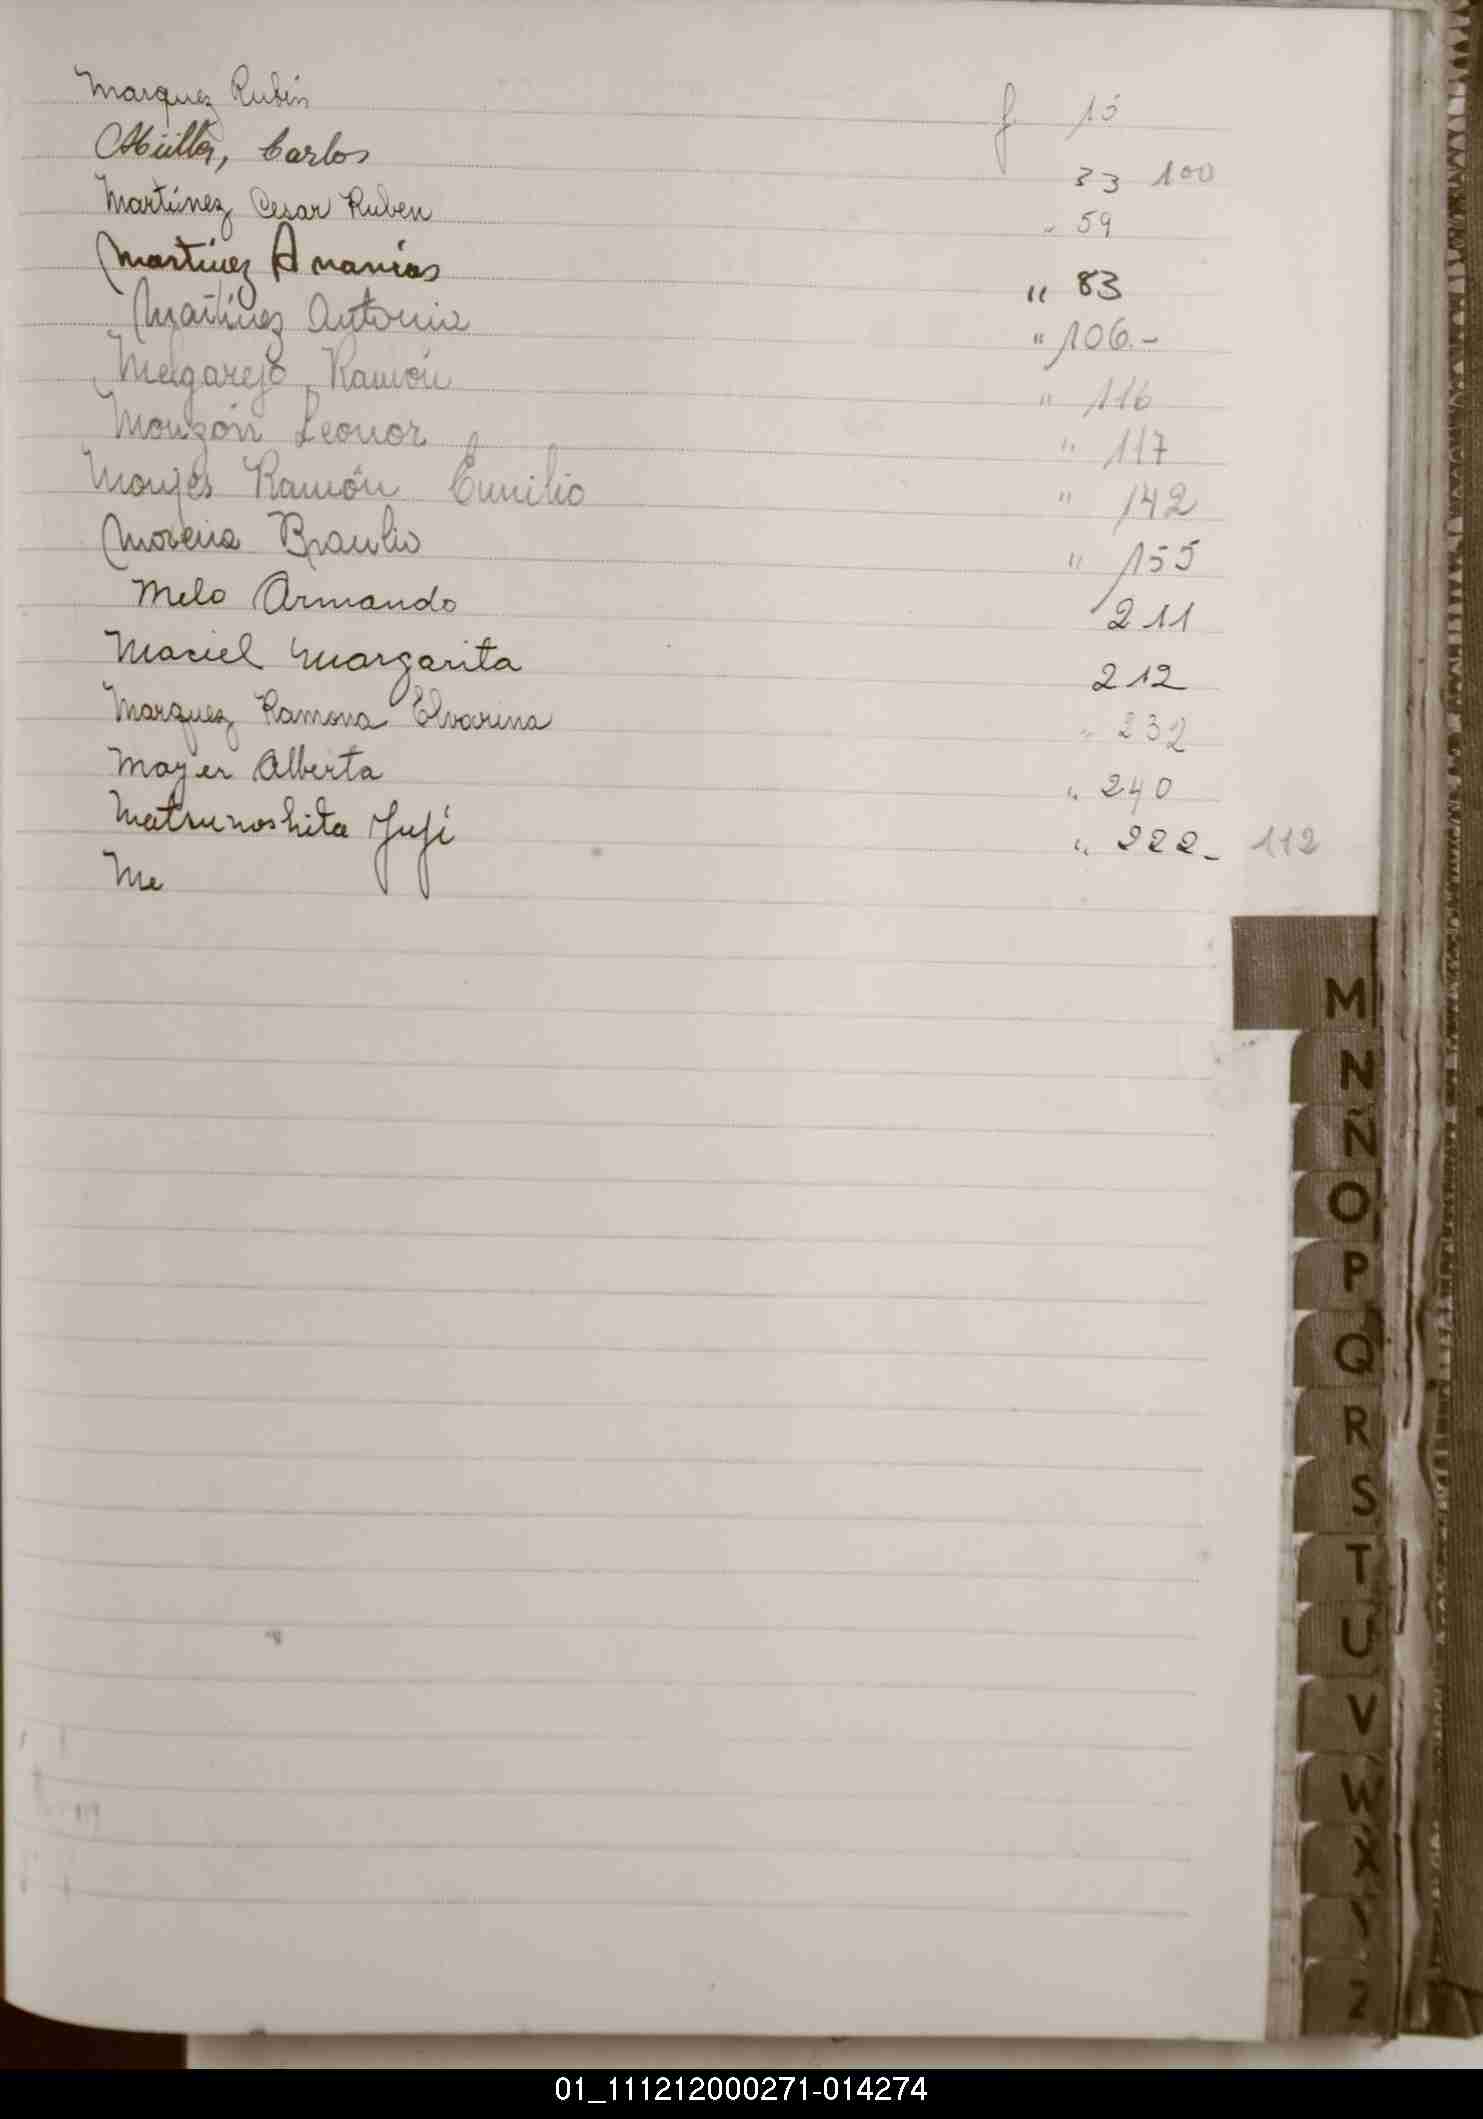 Marquez Rubén f 15
Müller, Carlos 33 100
Martínez Cesar Ruben " 59
Martinez Ananias " 83
Martinez Antonia " 106.-
Melgarejo Ramón " 116
Monzón Leonor " 117
Monjes Ramón Emilio " 142
Moreira Braulio " 155
Melo Armando 211
Maciel Margarita 212
Marquez Ramona Elvarina " 232
Mayer Alberta " 240
Matsunoshita Juji " 222- 112
Me
M
N
Ñ
O
P
Q
R
S
T
U
V
W
X
Y
Z
01_111212000271-014274